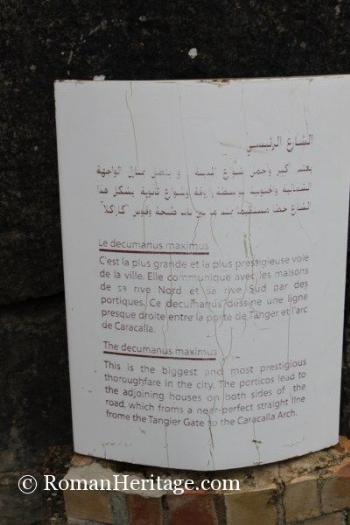 الشارع الرئيسي
يعتبر أكبر وأجمل شوارع المدينة
الشمالية والجنوبية بواسطة أروقة وشوارع ثانوية يشكل هذا
الشارع خطا مستقيما يمتد بين باب طنجة وقوس "كاركلا"
Le decumanus maximus
C'est la plus grande et la plus prestigieuse voie
de la ville. Elle communique avec les maisons
de sa rive Nord et sa rive Sud par des
portiques. Ce decumanus dessine une ligne
presque droite entre la porte de Tanger et l'arc
de Caracalla.
The decumanus maximus
This is the biggest and most prestigious
thoroughfare in the city. The porticos lead to
the adjoining houses on both sides of the
road, which froms a near-perfect straight line
frome the Tangier Gate to the Caracalla Arch.
© RomanHeritage.com